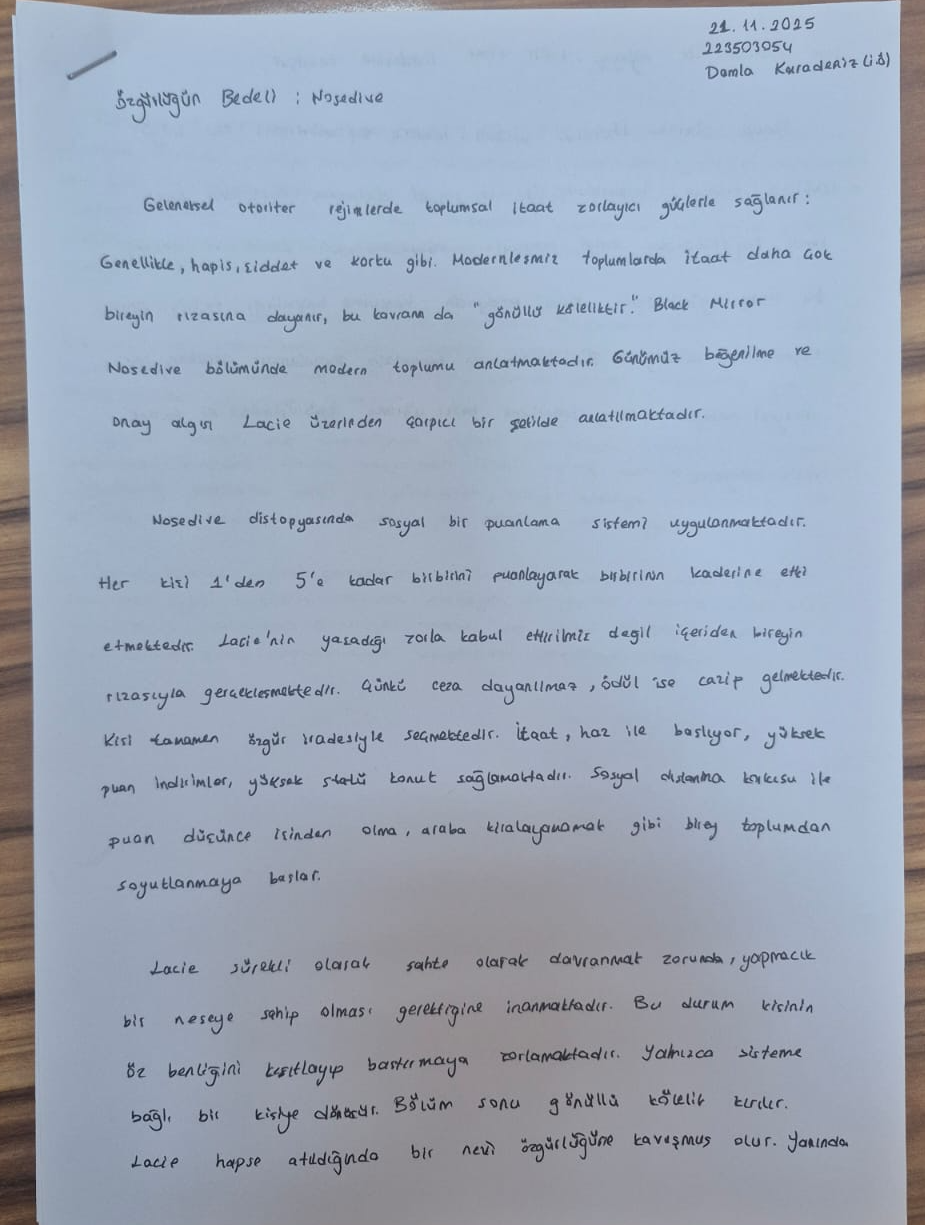 21.11.2025
223503054
Damla Karadeniz (İ.Ö)
Özgürlüğün Bedeli : Nosedive
Gelenersel otoriter rejimlerde toplumsal itaat zorlayıcı güçlerle sağlanır:
Genellikle, hapis, şiddet ve korku gibi. Modernleşmiş toplumlarda itaat daha çok
bireyin rızasına dayanır, bu kavram da "gönüllü köleliktir." Black Mirror
Nosedive bölümünde modern toplumu anlatmaktadır. Günümüz beğenilme ve
onay algısı Lacie üzerinden çarpıcı bir şekilde anlatılmaktadır.
Nosedive distopyasında sosyal bir puanlama sistemi uygulanmaktadır.
Her kişi 1'den 5'e kadar birbirini puanlayarak birbirinin kaderine etki
etmektedir. Lacie'nin yaşadığı zorla kabul ettirilmiş değil içeriden bireyin
rızasıyla gerçekleşmektedir. Çünkü ceza dayanılmaz, ödül ise cazip gelmektedir.
Kişi tamamen özgür iradesiyle seçmektedir. İtaat, haz ile başlıyor, yüksek
puan indirimler, yüksek statü konut sağlamaktadır. Sosyal dışlanma korkusu ile
puan düşünce işinden olma, araba kiralayamamak gibi birey toplumdan
soyutlanmaya başlar.
Lacie sürekli olarak sahte olarak davranmak zorunda, yapmacık
bir neşeye sahip olması gerektiğine inanmaktadır. Bu durum kişinin
öz benliğini kısıtlayıp bastırmaya zorlamaktadır. Yalnızca sisteme
bağlı bir kişiye dönüşür. Bölüm sonu gönüllü kölelik kırılır.
Lacie hapse atıldığında bir nevi özgürlüğüne kavuşmuş olur. Yanında